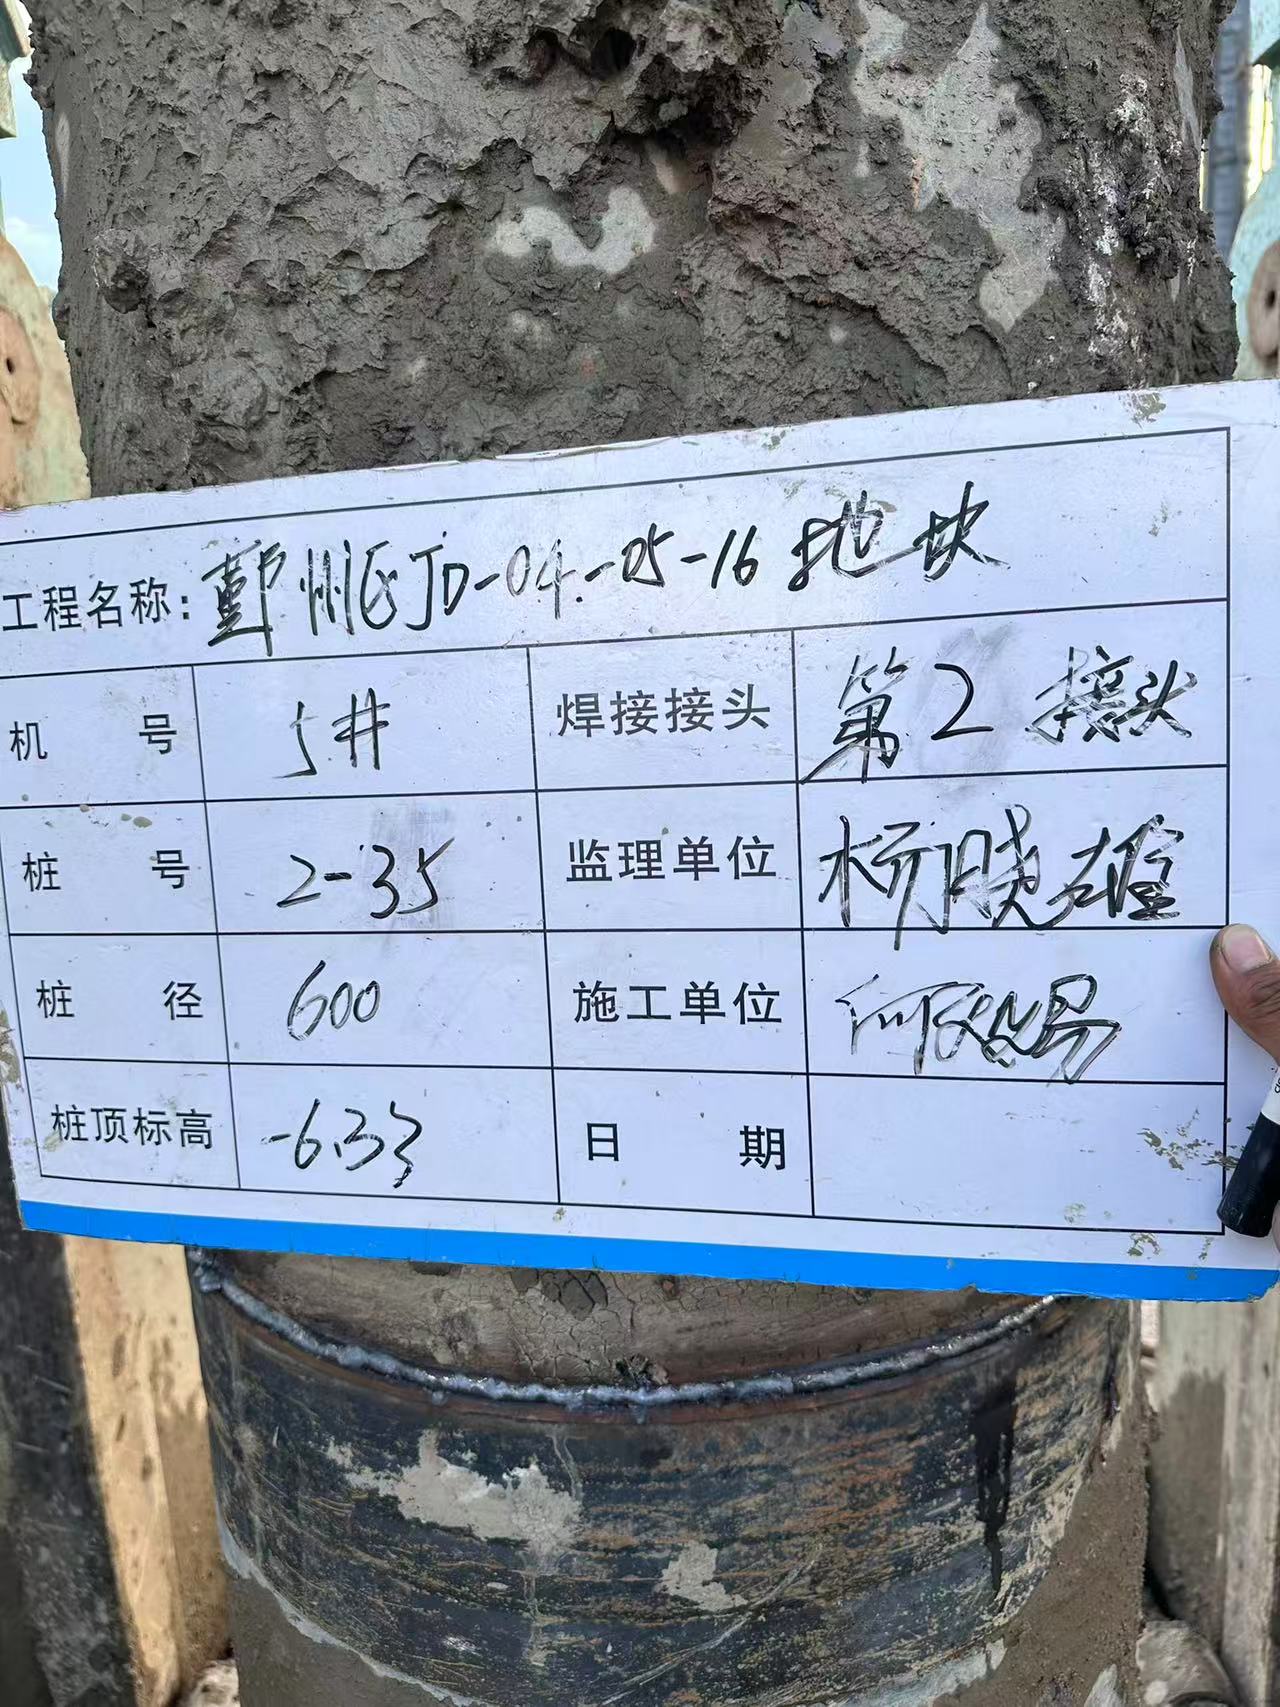 工程名称: 鄞州区JD-04-05-16地块
机 号 5# 焊接接头 第2接头
桩 号 2-35 监理单位 杨晓雄
桩 径 600 施工单位 何
桩顶标高 -6.33 日 期